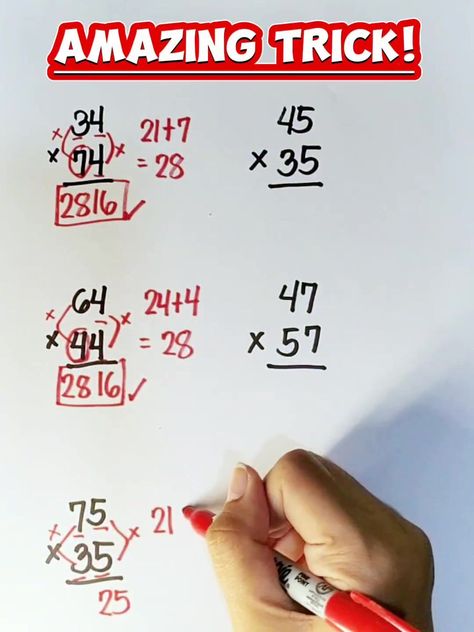 AMAZING TRICK!
34
× 74
2816 ✓
21+7
= 28
45
× 35
64
× 44
2816 ✓
24+4
= 28
47
× 57
75
× 35
25
21
FINE
POINT